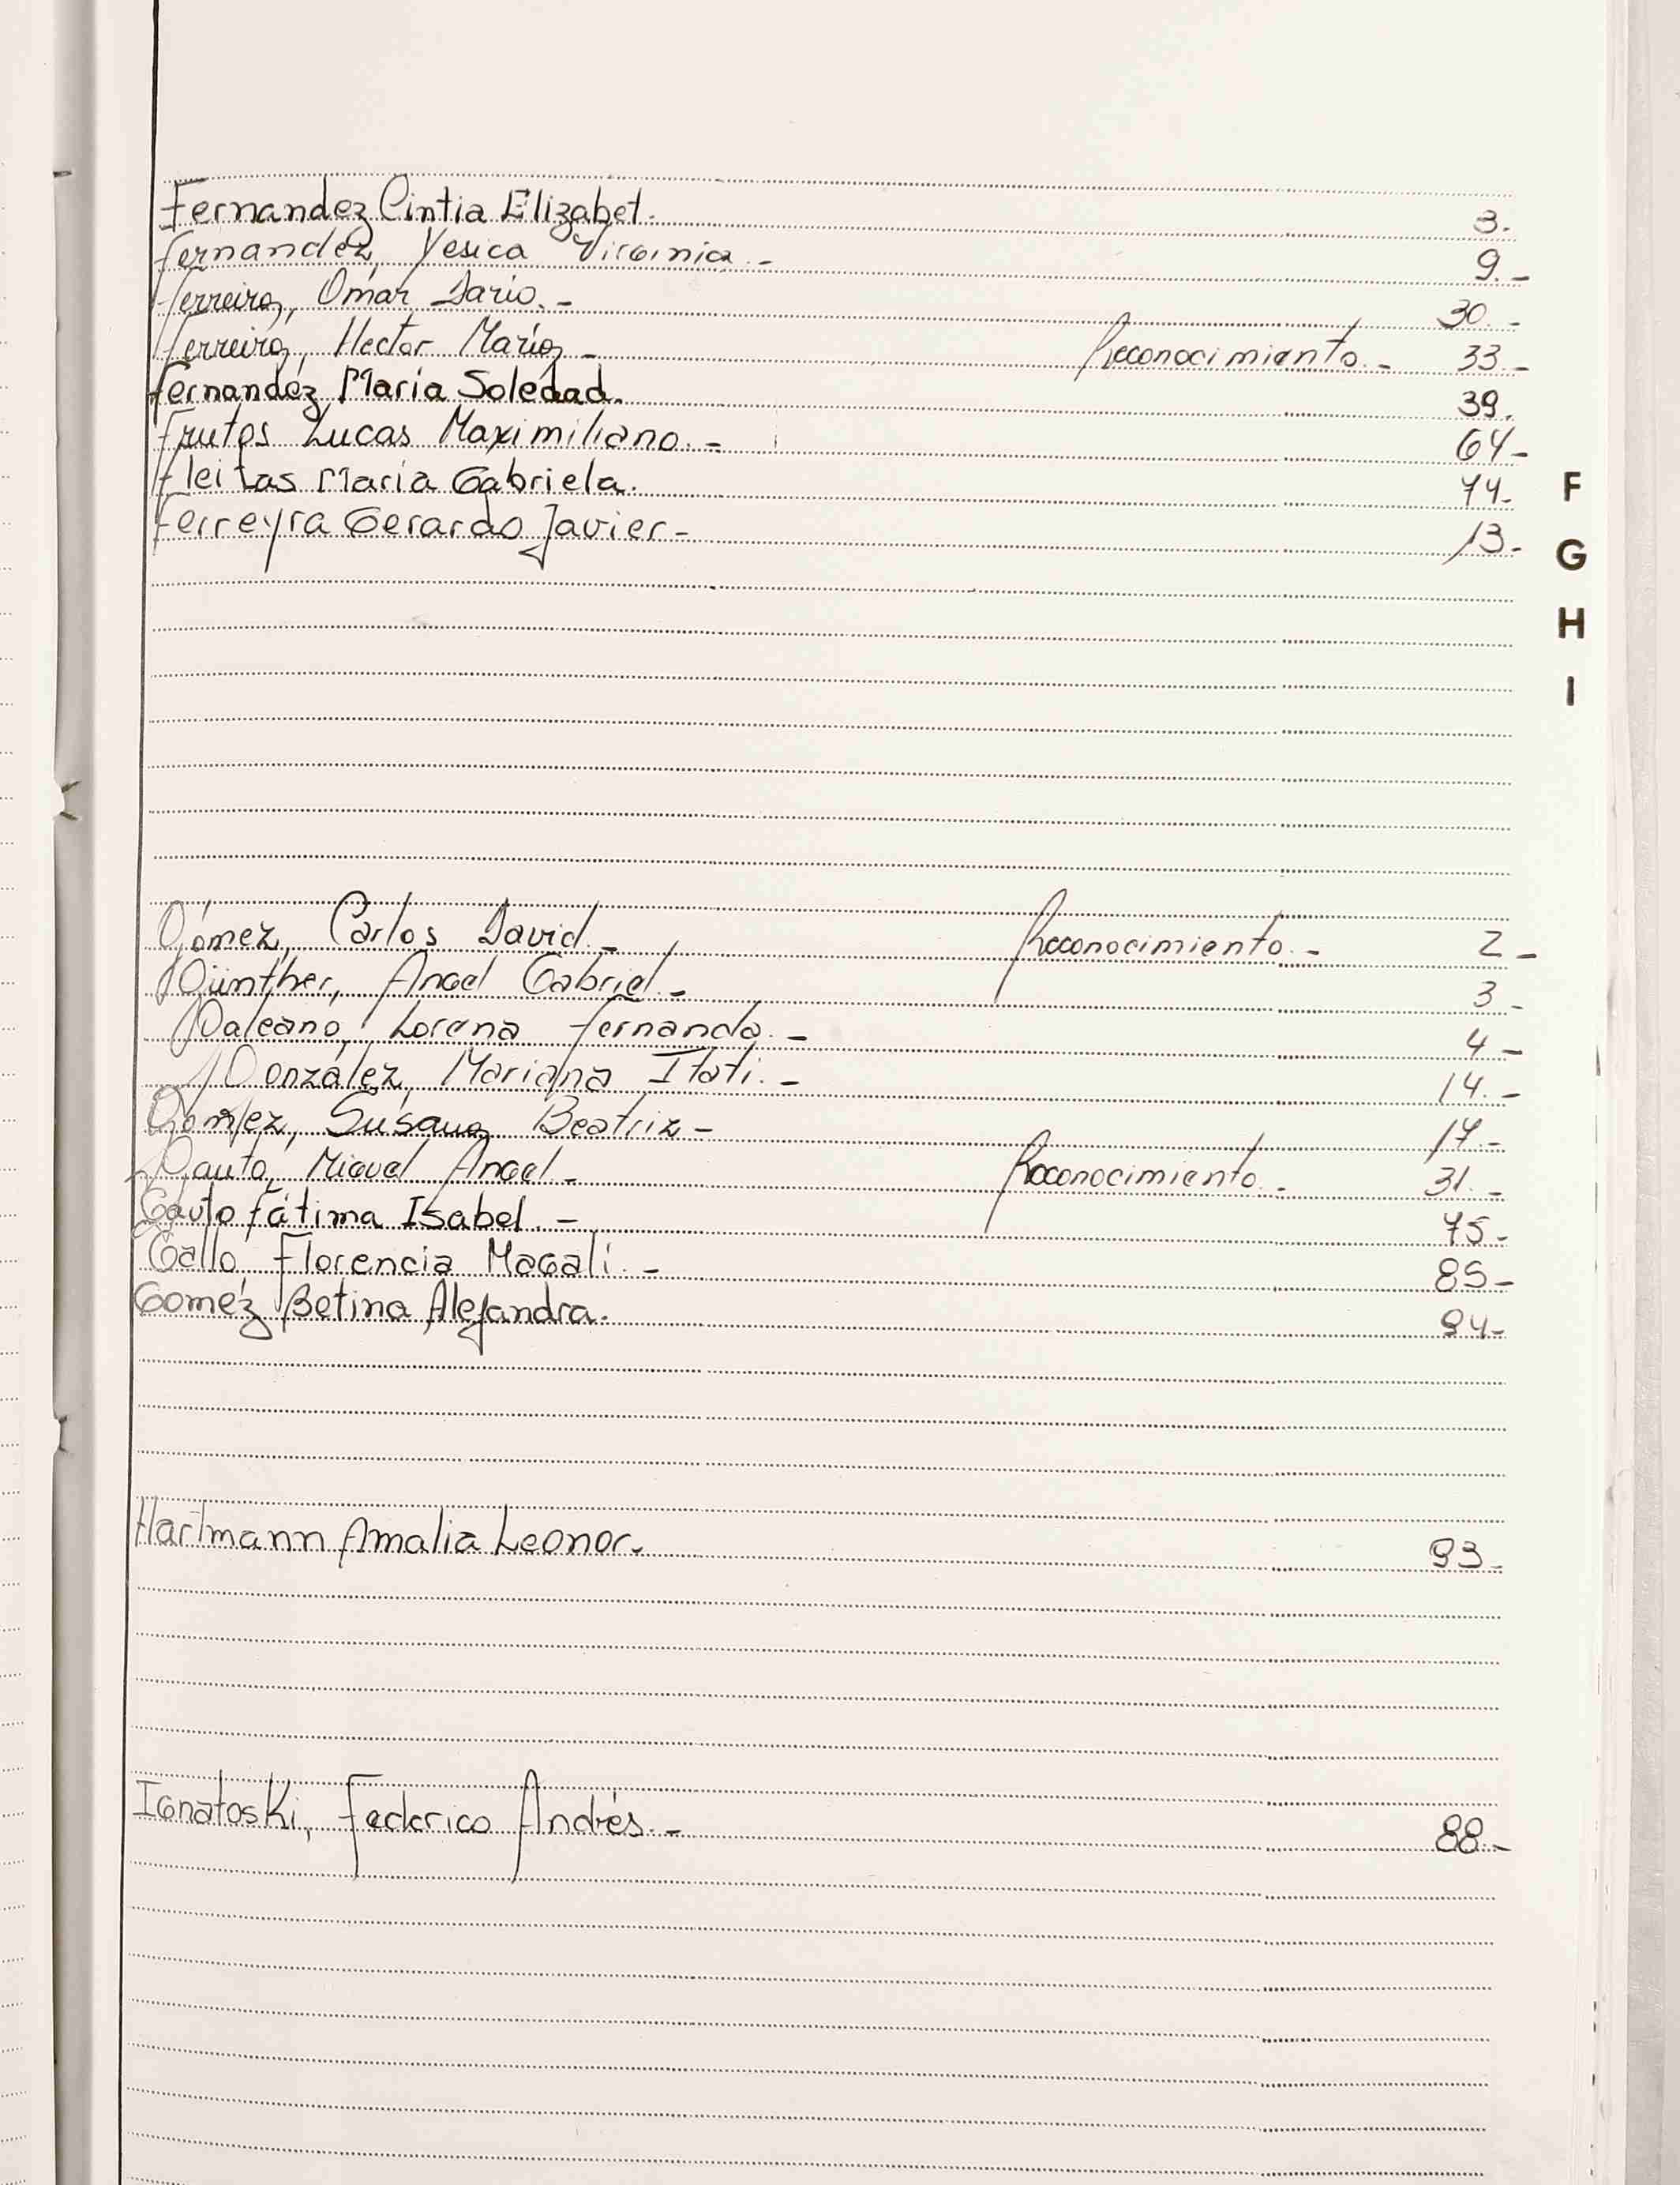 Fernandez Cintia Elizabet. 3.
Fernandez, Yesica Virginia.- 9.-
Ferreira, Omar Dario.- 30.-
Ferreira, Hector Mario.- Reconocimiento.- 33.-
Fernandez Maria Soledad. 39.
Frutos Lucas Maximiliano.- 64-
Fleitas Maria Gabriela. 74-
Ferreyra Gerardo Javier- 13-
F
G
H
I
Gómez, Carlos David.- Reconocimiento.- 2-
Günther, Angel Gabriel.- 3-
Galeano, Lorena Fernanda.- 4-
González, Mariana Itati.- 14.-
Gómez, Susana Beatriz- 17.-
Gauto, Miguel Angel.- Reconocimiento.- 31.-
Gauto Fátima Isabel.- 75-
Gallo, Florencia Magali.- 85-
Gomez Betina Alejandra. 94-
Hartmann Amalia Leonor. 93-
Ignatoski, Federico Andrés.- 88.-